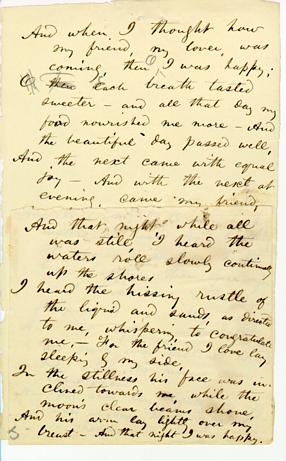 And when I thought how
my friend, my lover, was
coming, then O I was happy;
O then Each breath tasted
sweeter — and all that day my
food nourished me more — And
the beautiful day passed well,
And the next came with equal
joy — And with the next at
evening, came my friend,
And that night while all
was still, I heard the
waters roll slowly continually
up the shores
I heard the hissing rustle of
the liquid and sands, as directed
to me, whispering, to congratulate
me, — For the friend I love lay
sleeping by my side,
In the stillness his face was in-
clined towards me, while the
moon's clear beams shone,
And his arm lay lightly over my
breast — And that night I was happy.